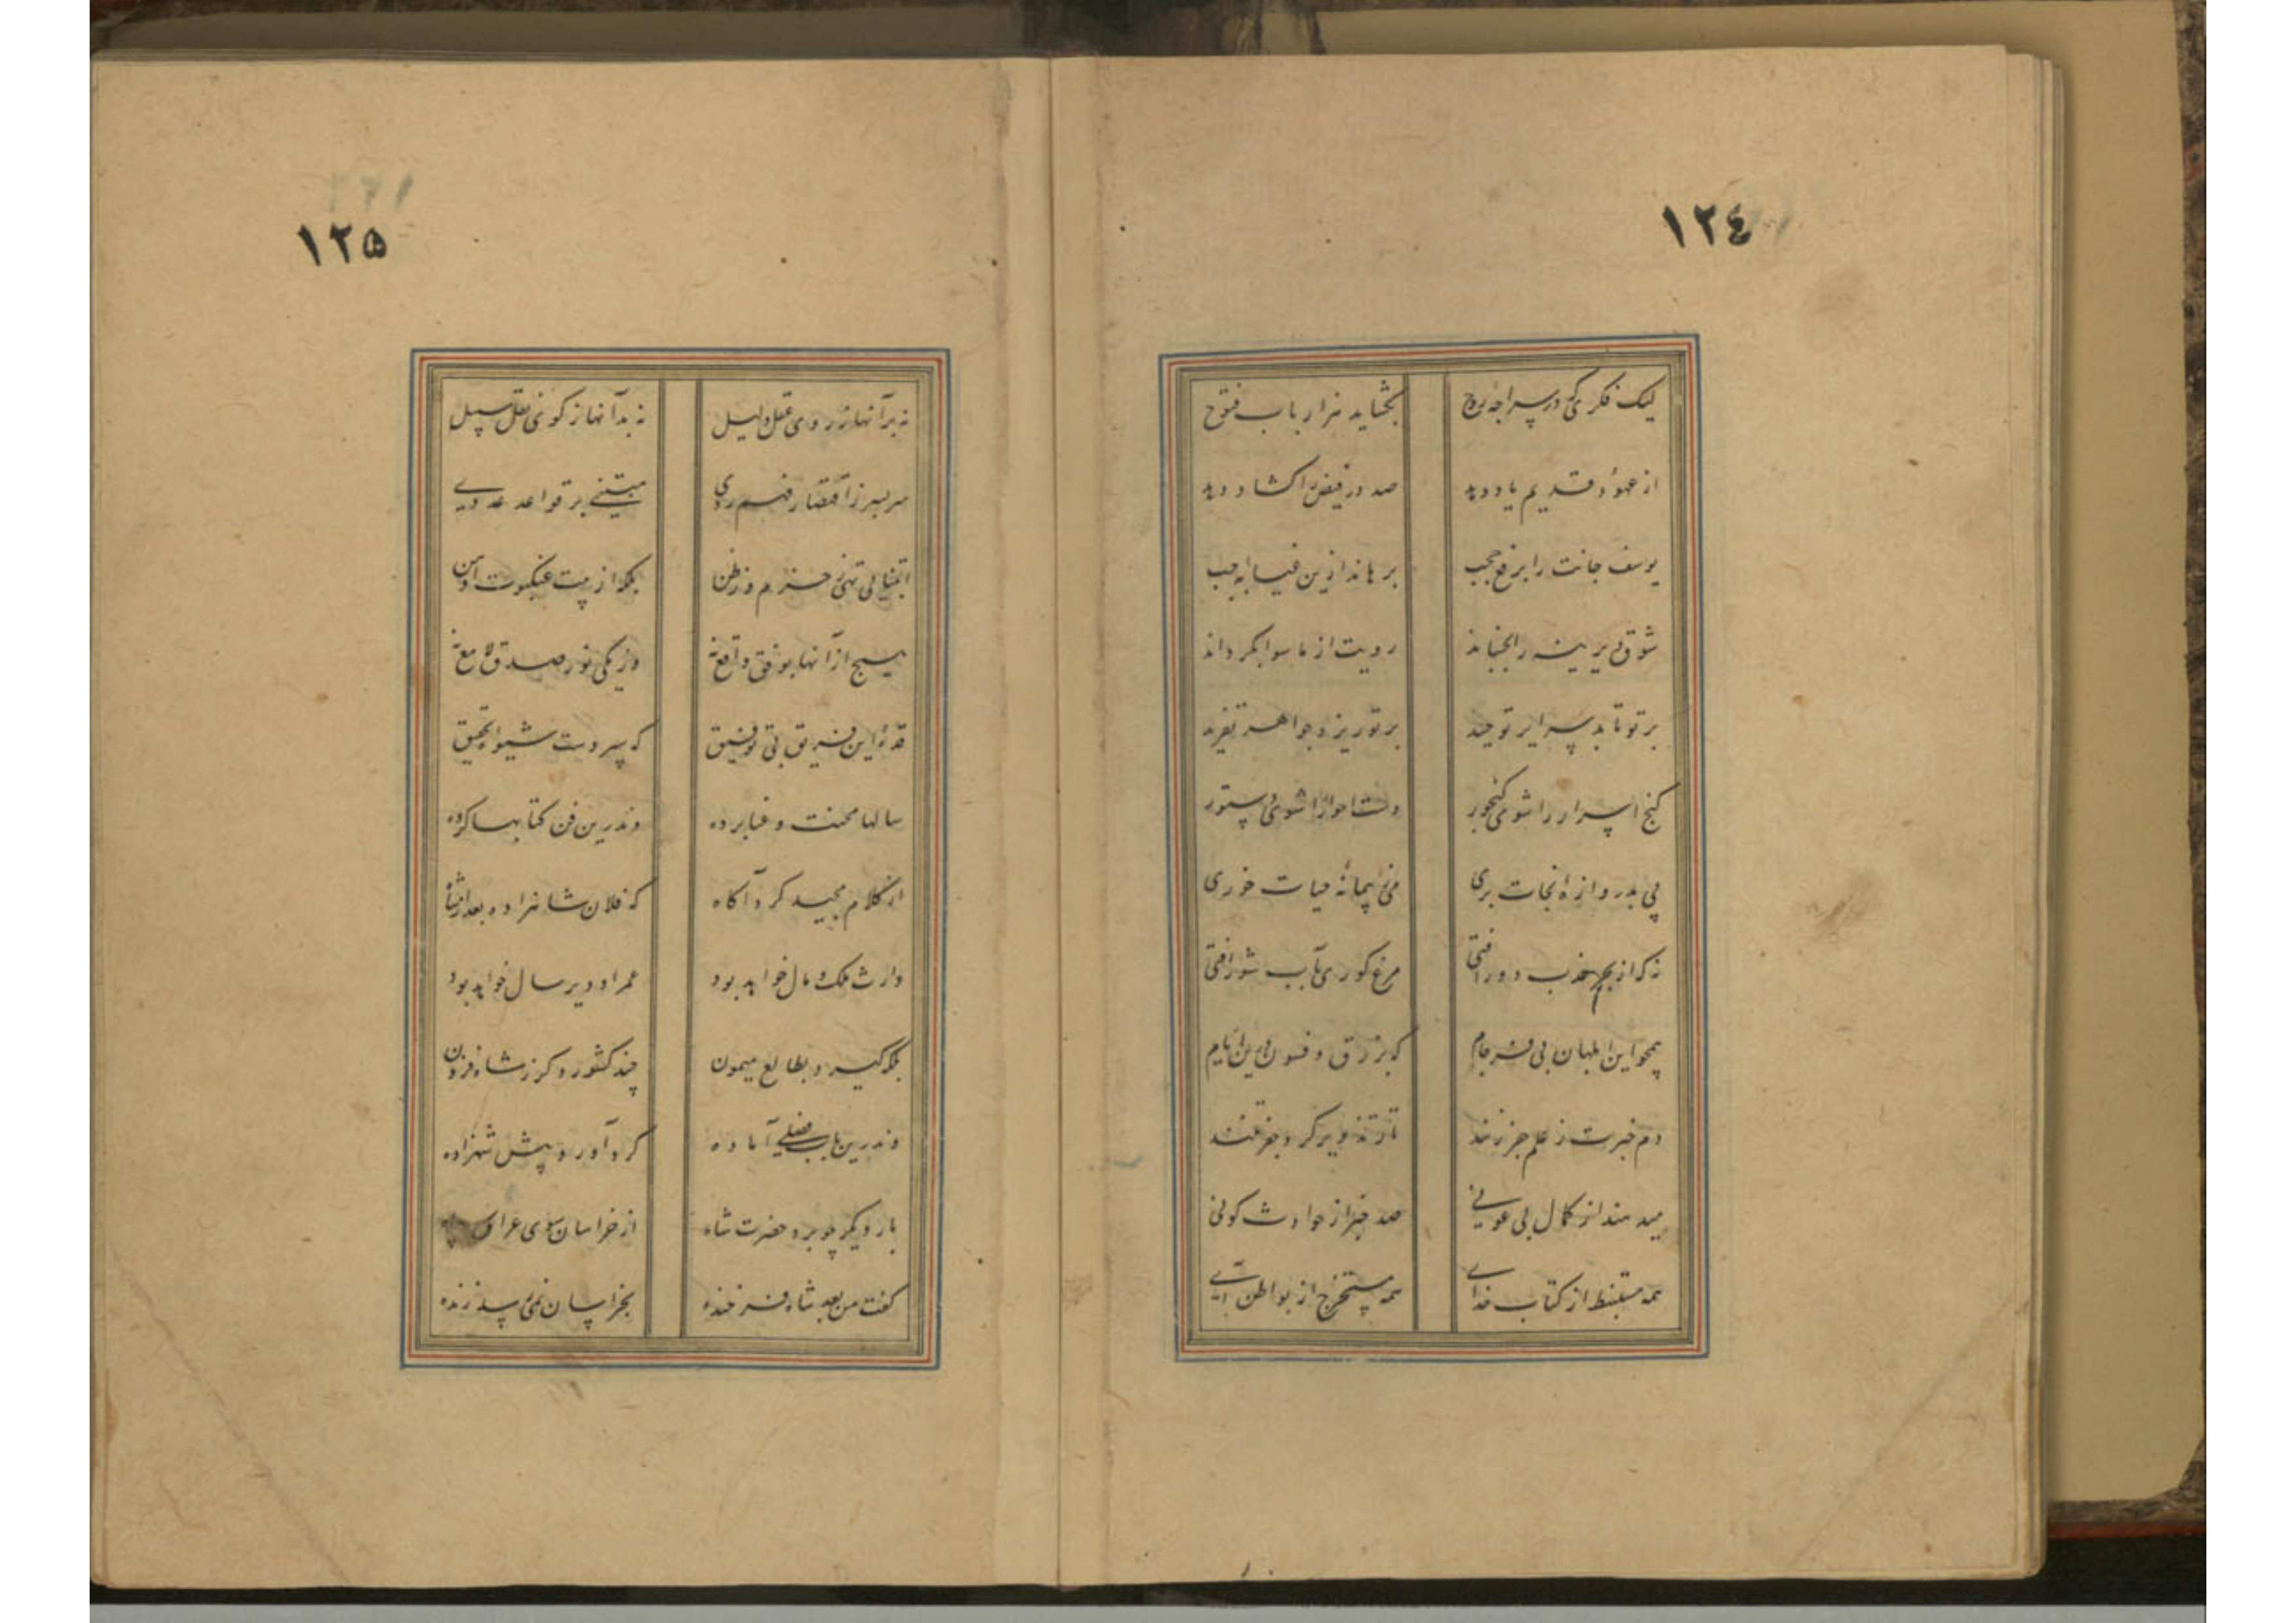 ١٢٤
لیک فکری که در سراچه روح
بگشاید هزار باب فتوح
از عهود قدیم یاد دهد
صد در فیض را گشاد دهد
یوسف جانت را برفع حجب
برهاند ازین غیابه جب
شوق دیرینه را بجنباند
رویت از ماسوا بگرداند
بر تو تابد سرایر توحید
بر تو ریزد جواهر تفرید
گنج اسرار را شوی گنجور
دلت احرار را شود دستور
پی بدروازهٔ نجات بری
می ز پیمانهٔ حیات خوری
نه که از بحر عذب دور افتی
مرغ کوری بآب شور افتی
همچو این ابلهان بی فرجام
که بزرق و فسون درین ایام
دم خبرت ز علم جفر زنند
تار تزویر گرد جفر تنند
میدهند از کمال بی عونی
صد خبر از حوادث کونی
همه مستنبط از کتاب خدای
همه مستخرج از بواطن آی
١٢٥
نه برآنها ز روی عقل دلیل
نه بدآنها ز کوی نقل سبیل
سربسر ز اقتضار فهم ردی
مبتنی بر قواعد عددی
ابتنائی تهی ز حزم و ز ظن
بلکه از بیت عنکبوت اوهن
هیچ از آنها بوفق واقع نه
وز یکی نور صدق لامع نه
قدوهٔ این فریق بی توفیق
که سپر دست شیوهٔ تحقیق
سالها محنت و عنا برده
وندرین فن کتابها کرده
از کلام مجید کرد آگاه
که فلان شاهزاده بعد از شاه
وارث ملک و مال خواهد بود
عمر او دیر سال خواهد بود
بلکه گیرد بطالع میمون
چند کشور دگر ز شاه فزون
وندرین باب فصلی آماده
کرد آورد پیش شهزاده
بار دیگر چو برد حضرت شاه
از خراسان سوی عراق سپاه
گفت من بعد شاه فرخنده
بخراسان نمی رسد زنده